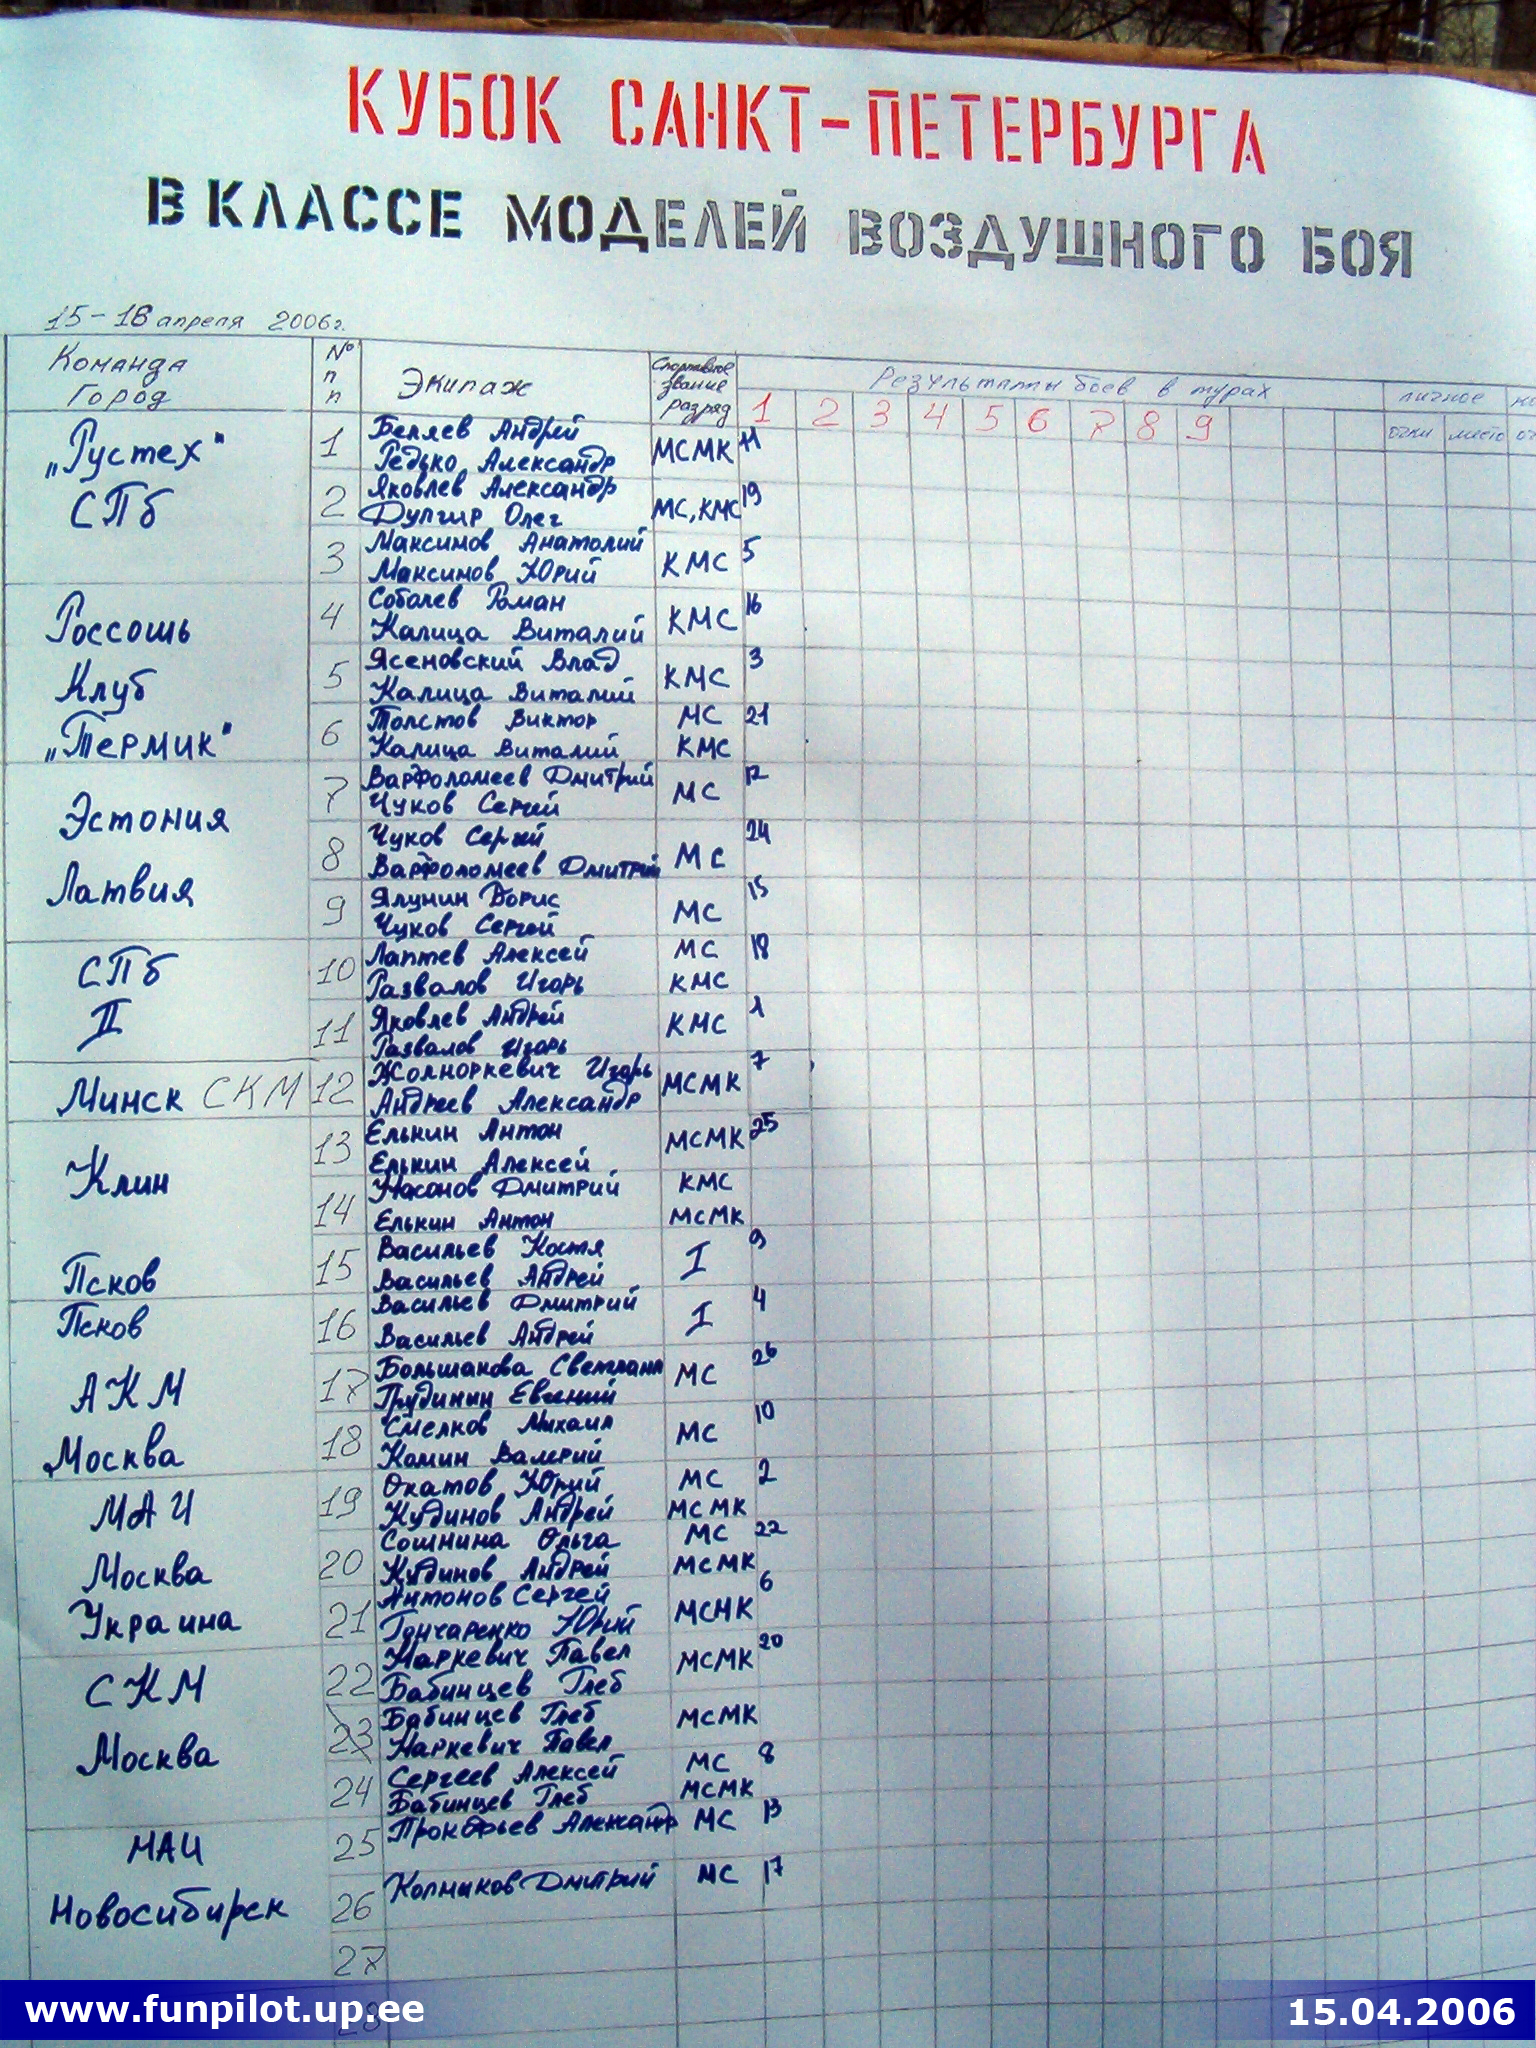 КУБОК САНКТ-ПЕТЕРБУРГА
В КЛАССЕ МОДЕЛЕЙ ВОЗДУШНОГО БОЯ
15-18 апреля 2006г.
Команда Город
№ п п
Экипаж
Спортивное звание разряд
Результаты боев в турах
личное
1 2 3 4 5 6 7 8 9
очки место
„Рустех"
СПб
1 Беляев Андрей МСМК 11
Редько Александр
2 Яковлев Александр МС, КМС 19
Дулгир Олег
3 Максимов Анатолий КМС 5
Максимов Юрий
Россошь
Клуб
„Термик"
4 Соболев Роман КМС 16
Калица Виталий
5 Ясеновский Влад КМС 3
Калица Виталий
6 Толстов Виктор МС 21
Калица Виталий КМС
Эстония
Латвия
7 Варфоломеев Дмитрий МС 12
Чуков Сергей
8 Чуков Сергей МС 24
Варфоломеев Дмитрий
9 Ялунин Борис МС 15
Чуков Сергей
СПб
II
10 Лаптев Алексей МС 18
Развалов Игорь КМС
11 Яковлев Андрей КМС 1
Развалов Игорь
Минск СКМ
12 Жолноркевич Игорь МСМК 7
Андреев Александр
Клин
13 Елькин Антон МСМК 25
Елькин Алексей
14 Дмитрий КМС
Елькин Антон МСМК
Псков
15 Васильев Костя I 9
Васильев Андрей
Псков
16 Васильев Дмитрий I 4
Васильев Андрей
АКМ
Москва
17 Большакова Светлана МС 26
Грудинин Евгений
18 Смелков Михаил МС 10
Комин Валерий
МАИ
Москва
19 Окатов Юрий МС 2
Кудинов Андрей МСМК
20 Сошнина Ольга МС 22
Кудинов Андрей МСМК
Украина
21 Антонов Сергей МСМК 6
Гончаренко Юрий
СКМ
Москва
22 Наркевич Павел МСМК 20
Бабинцев Глеб
23 Бабинцев Глеб МСМК
Наркевич Павел
24 Сергеев Алексей МС 8
Бабинцев Глеб МСМК
МАИ
25 Прокофьев Александр МС 13
Новосибирск
26 Колмыков Дмитрий МС 17
27
28
www.funpilot.up.ee
15.04.2006